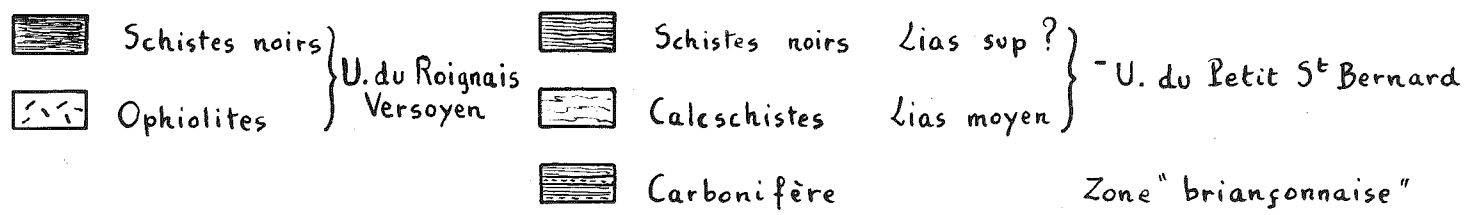 Schistes noirs
Ophiolites
U. du Roignais
Versoyen
Schistes noirs Lias sup ?
Calcschistes Lias moyen
- U. du Petit St Bernard
Carbonifère Zone "briançonnaise"